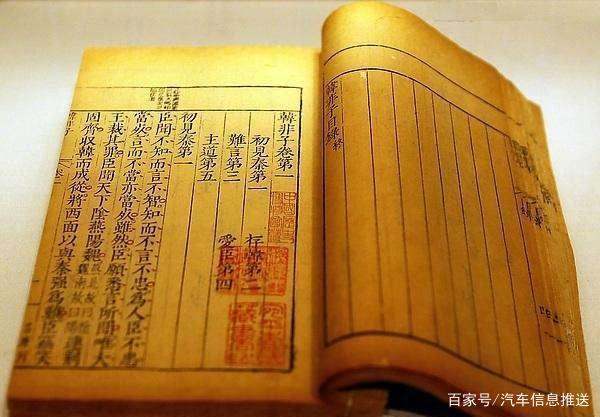 韓非子目錄終
韓非子卷第一
初見秦第一 存韓第二
難言第三 愛臣第四
主道第五
初見秦第一
臣聞不知而言不智知而不言不忠為人臣不忠
當死言而不當亦當死雖然臣願悉言所聞唯大
王裁其罪臣聞天下陰燕陽魏連荊
固齊收韓而成從將西面以與秦强為難臣竊笑
百家号/汽车信息推送